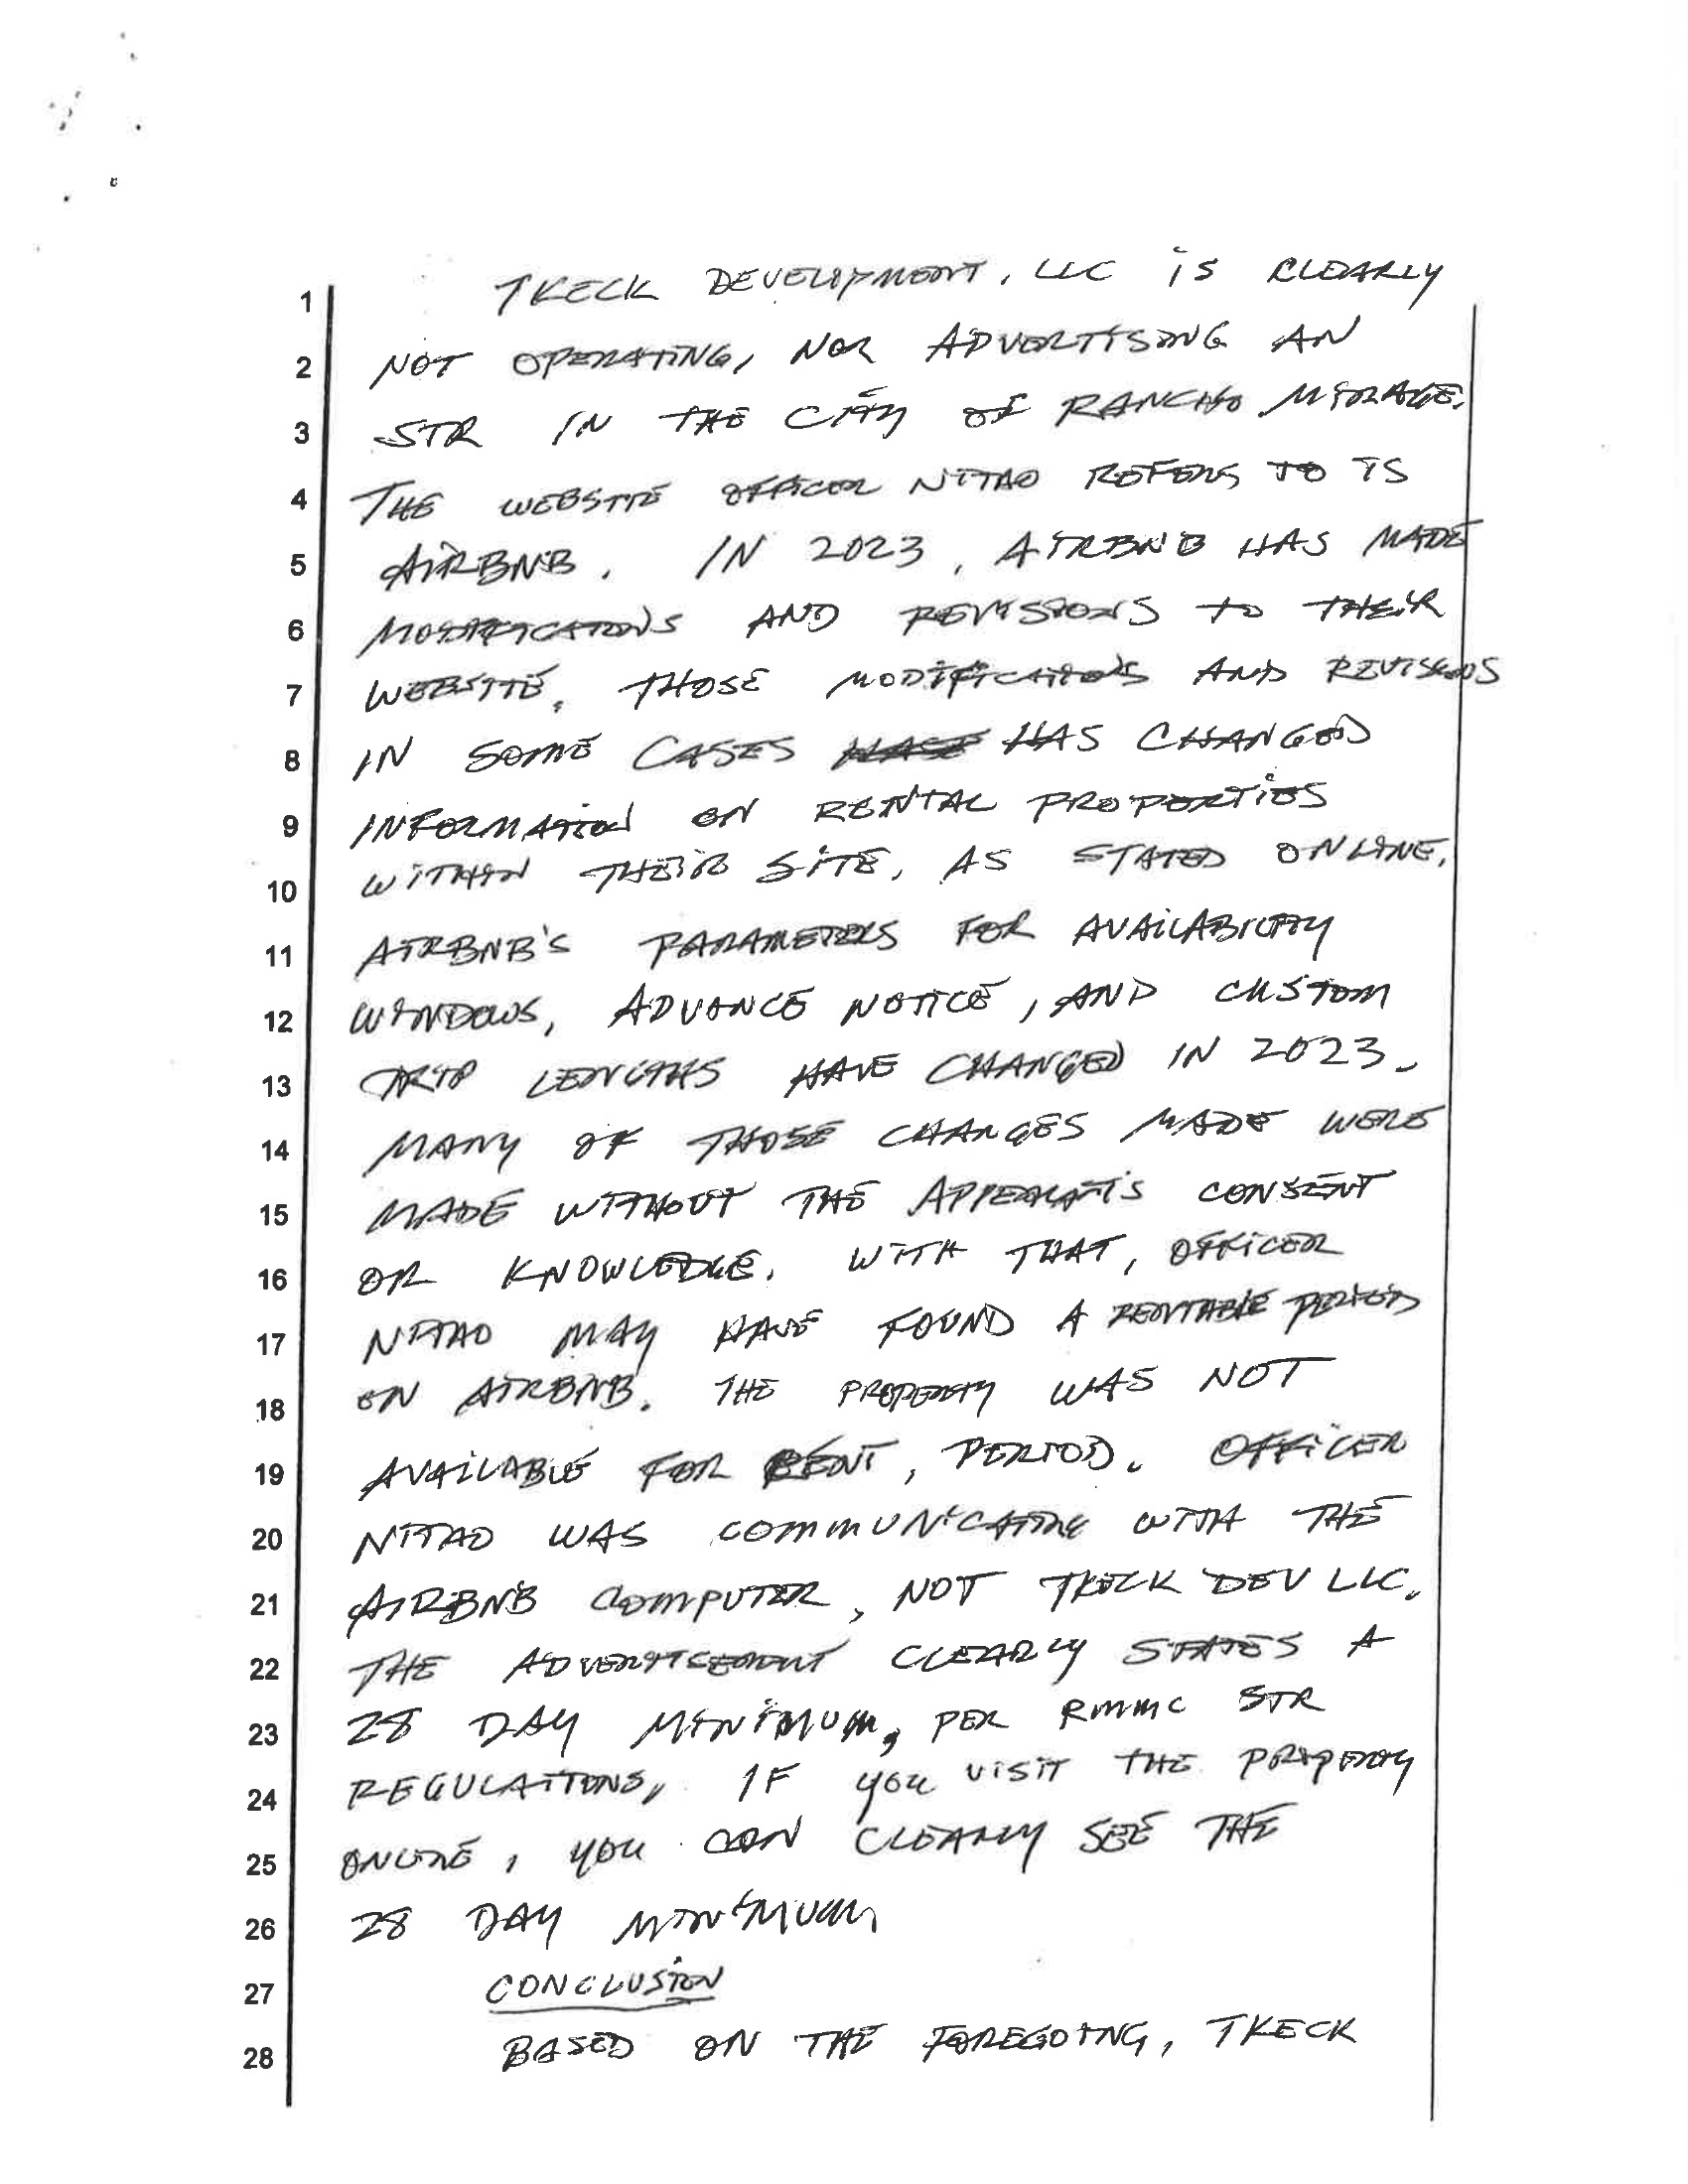 1 TKECK DEVELOPMENT, LLC is CLEARLY
2 NOT OPERATING, NOR ADVERTISING AN
3 STR IN THE CITY OF RANCHO MIRAGE.
4 THE WEBSITE OFFICER NITAO REFERS TO IS
5 AIRBNB. IN 2023, AIRBNB HAS MADE
6 MODIFICATIONS AND REVISIONS TO THEIR
7 WEBSITE. THOSE MODIFICATIONS AND REVISIONS
8 IN SOME CASES HAS CHANGED
9 INFORMATION ON RENTAL PROPERTIES
10 WITHIN THEIR SITE, AS STATED ONLINE.
11 AIRBNB'S PARAMETERS FOR AVAILABILITY
12 WINDOWS, ADVANCE NOTICE, AND CUSTOM
13 TRIP LENGTHS HAVE CHANGED IN 2023.
14 MANY OF THOSE CHANGES MADE WERE
15 MADE WITHOUT THE APPELLANT'S CONSENT
16 OR KNOWLEDGE. WITH THAT, OFFICER
17 NITAO MAY HAVE FOUND A RENTABLE PERIOD
18 ON AIRBNB. THE PROPERTY WAS NOT
19 AVAILABLE FOR RENT, PERIOD. OFFICER
20 NITAO WAS COMMUNICATING WITH THE
21 AIRBNB COMPUTER, NOT TKECK DEV LLC.
22 THE ADVERTISEMENT CLEARLY STATES A
23 28 DAY MINIMUM, PER RMMC STR
24 REGULATIONS, IF YOU VISIT THE PROPERTY
25 ONLINE, YOU CAN CLEARLY SEE THE
26 28 DAY MINIMUM
27 CONCLUSION
28 BASED ON THE FOREGOING, TKECK